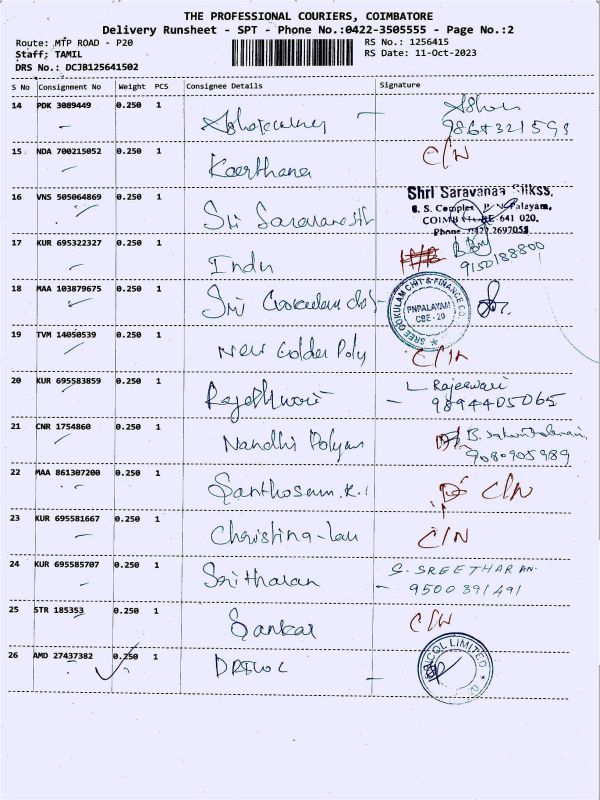 THE PROFESSIONAL COURIERS, COIMBATORE
Delivery Runsheet - SPT - Phone No.:0422-3505555 - Page No.:2
Route: MTP ROAD - P20
RS No.: 1256415
Staff; TAMIL
RS Date: 11-Oct-2023
DRS No.: DCJB125641502
S No Consignment No Weight PCS Consignee Details Signature
14 PDK 3089449 0.250 1
Ashokkumar
15 NDA 700215052 0.250 1 C/N
Keerthana
16 VNS 505064869 0.250 1 Shri Saravanaa Silkss,
Complex Palayam,
Sri Saravana COIMBATORE 641 020.
Phone 0422 2697055
17 KUR 695322327 0.250 1
Indu 9150188800
18 MAA 103879675 0.250 1 SREE GOKULAM CHIT & FINANCE CO.
Sri Gokulam PNPALAYAM
CBE-20
19 TVM 14050539 0.250 1
New Golden Poly C/N
20 KUR 695583859 0.250 1 L Rajeswari
Rajeshwari 9894405065
21 CNR 1754860 0.250 1 B.
Nandhi Polyam 9080905989
22 MAA 861307200 0.250 1
Santhosam.K. C/N
23 KUR 695581667 0.250 1
Christina-lau C/N
24 KUR 695585707 0.250 1 S. SREETHARAN.
Sritharan 9500391491
25 STR 185353 0.250 1 C/N
Sankar
26 AMD 27437382 0.250 1 LIMITED